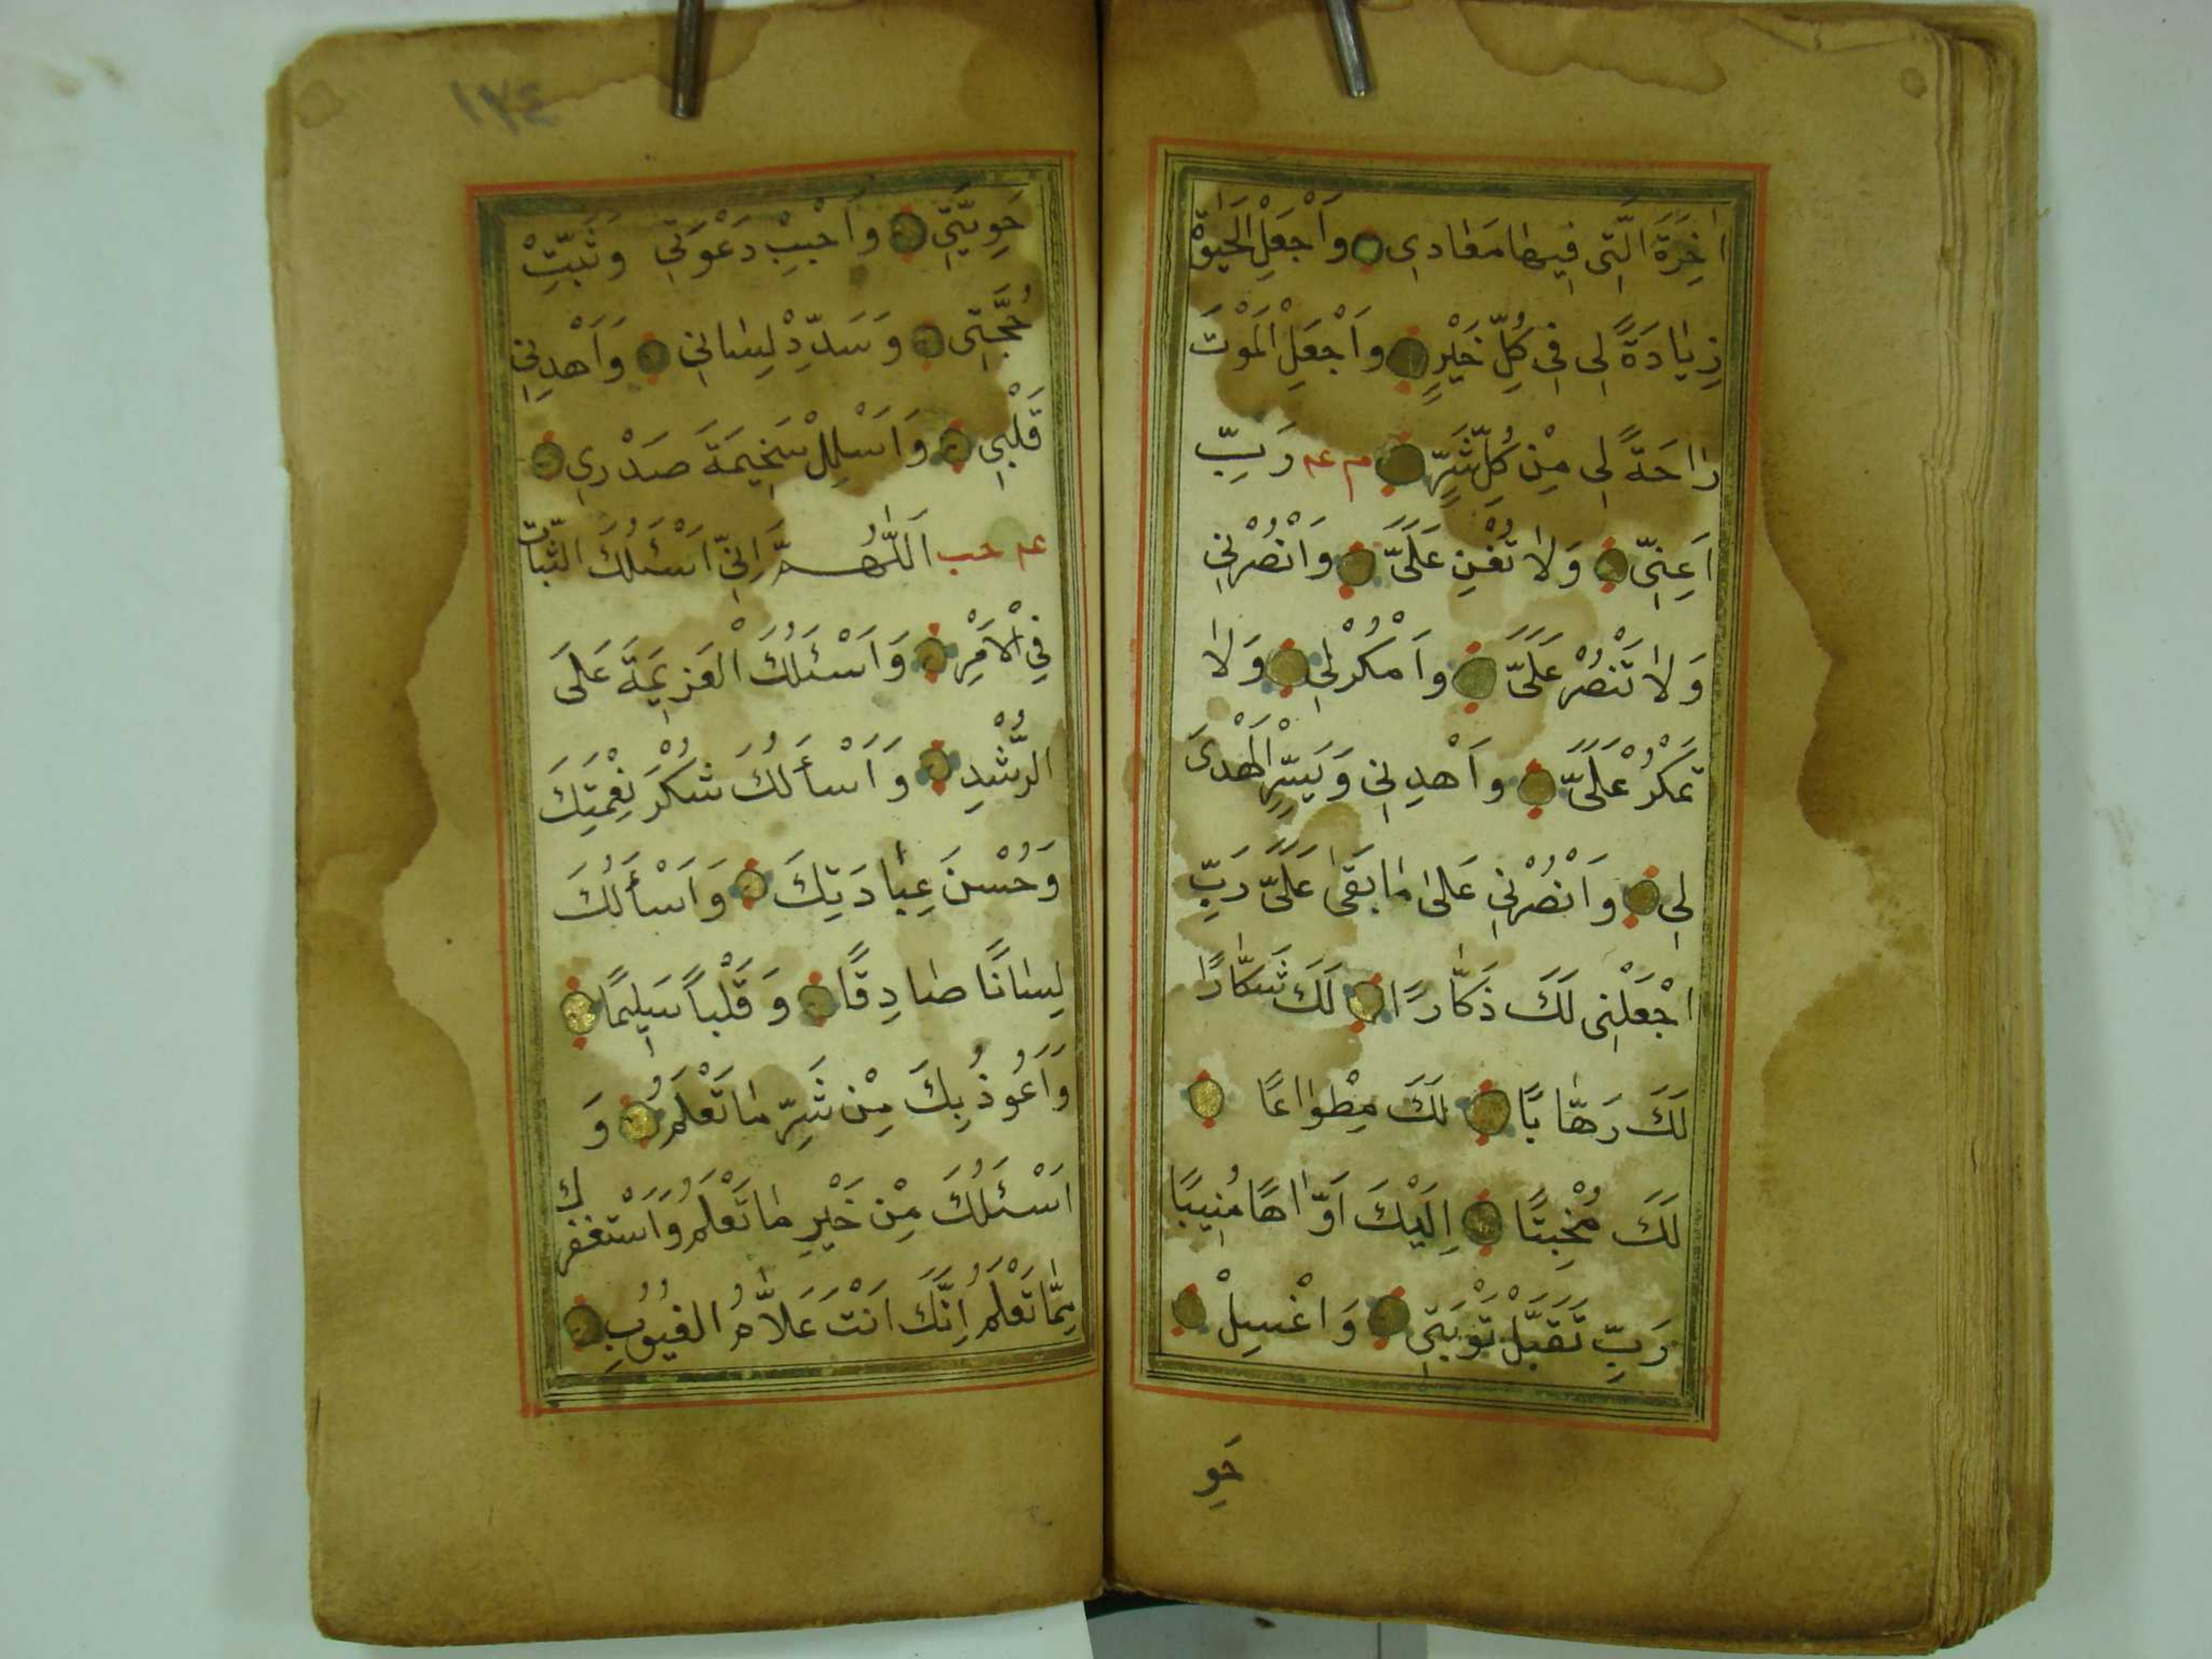 اٰخِرَةَ الَّتِى فِيهَا مَعَادِى وَاَجْعَلِ الْحَيٰوةَ
زِيَادَةً لِى فِى كُلِّ خَيْرٍ وَاَجْعَلِ الْمَوْتَ
رَاحَةً لِى مِنْ كُلِّ شَرٍّ م عه رَبِّ
اَعِنِّى وَلَا تُعِنْ عَلَىَّ وَانْصُرْنِى
وَلَا تَنْصُرْ عَلَىَّ وَاَمْكُرْ لِى وَلَا
تَمْكُرْ عَلَىَّ وَاَهْدِنِى وَيَسِّرِ الْهُدَىَ
لِى وَاَنْصُرْنِى عَلَى مَا بَقَى عَلَىَّ رَبِّ
اجْعَلْنِى لَكَ ذَكَّارًا لَكَ شَكَّارًا
لَكَ رَهَّابًا لَكَ مِطْوَاعًا
لَكَ مُخْبِتًا اِلَيْكَ اَوَّاهًا مُنِيبًا
رَبِّ تَقَبَّلْ تَوْبَتِى وَاغْسِلْ
حَو
١٣٤
حَوِيَّتِى وَاَجْبِبْ دَعْوَتِى وَثَبِّتْ
حُجَّتِى وَسَدِّدْ لِسَانِى وَاَهْدِنِى
قَلْبِى وَاَسْلِلْ سَخِيمَةَ صَدْرِى
عه حب اَللّٰهُمَّ اِنِّى اَسْئَلُكَ الثَّبَاتَ
فِى الْاَمْرِ وَاَسْئَلُكَ الْعَزِيمَةَ عَلَى
الرُّشْدِ وَاَسْأَلُكَ شُكْرَ نِعْمَتِكَ
وَحُسْنَ عِبَادَتِكَ وَاَسْأَلُكَ
لِسَانًا صَادِقًا وَقَلْبًا سَلِيمًا
وَاَعُوذُ بِكَ مِنْ شَرِّ مَا تَعْلَمُ وَ
اَسْئَلُكَ مِنْ خَيْرِ مَا تَعْلَمُ وَاَسْتَغْفِرُكَ
مِمَّا تَعْلَمُ اِنَّكَ اَنْتَ عَلَّامُ الْغُيُوبِ